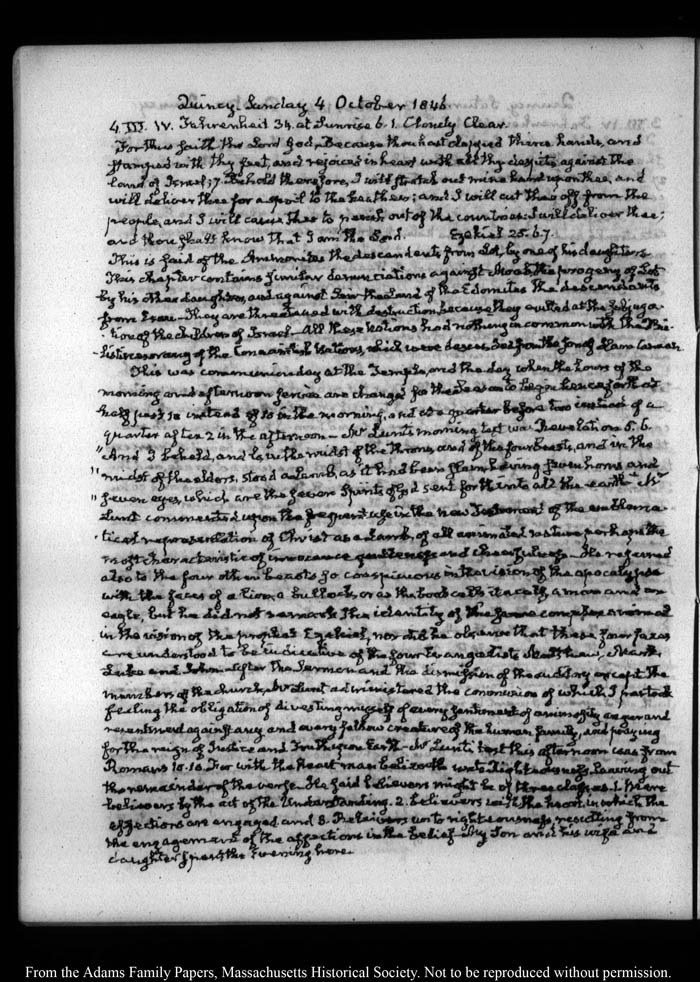 Quincy. Sunday 4 October 1846
4. III. IV. Fahrenheit 34. at Sunrise 6. 1. Cloudy Clear.
For thus saith the Lord God, Because thou hast clapped thine hands, and
stamped with thy feet, and rejoiced in heart with all thy despite against the
land of Israel; 7. Behold therefore, I will stretch out mine hand upon thee, and
will deliver thee for a spoil to the heathen; and I will cut thee off from the
people, and I will cause thee to perish out of the countries: I will deliver thee;
and thou shalt know that I am the Lord. Ezekiel 25. 6. 7.
This is said of the Ammonites the descendents from Lot, by one of his daughters.
This chapter contains similar denunciations against Moab the progeny of Lot
by his other daughter, and against Seir the land of the Edomites the descendants
from Esau. They are threatened with destruction because they exulted at the
of the children of Israel. All these Nations had nothing in common with the
of the Canaanitish Nations, which were descended from the son of Ham Canaan.
This was communion day at the Temple, and the day when the hours of the
morning and afternoon service are changed for the Season to begin henceforth at
half past 10 instead of 10 in the morning, and at a quarter before two instead of a
quarter after 2 in the afternoon – Mr Lunt's morning text was Revelations 5. 6.
"And I beheld, and lo in the midst of the throne, and of the four beasts, and in the
" midst of the elders, stood a Lamb, as it had been slain having seven horns and
" seven eyes, which are the seven Spirits of God sent forth into all the earth" Mr
Lunt commented upon the frequent use in the new Testament of the emblema-
tical representation of Christ as a Lamb, of all animated nature perhaps the
most characteristic of innocence gentleness and cheerfulness. He referred
also to the four other beasts so conspicuous in the vision of the apocalypse
with the faces of a lion, a bullock, or as the book calls it a calf, a man and an
eagle, but he did not remark the identity of the same complex animal
in the vision of the prophet Ezekiel, nor did he observe that these four faces
are understood to be indicative of the four Evangelists Matthew, Mark,
Luke and John. After the Sermon and the dismission of the auditory except the
members of the church, Mr Lunt administered the communion of which I partook
feeling the obligation of divesting myself of every sentiment of animosity anger and
resentment against any and every fellow creature of the human family, and praying
for the reign of Justice and Truth upon Earth – Mr Lunt's text this afternoon was from
Romans 10. 10. For with the heart man believeth unto righteousness, leaving out
the remainder of the verse. He said believers might be of three classes. 1. Mere
believers by the act of the Understanding. 2. believers with the heart, in which the
affections are engaged and 3. Believers unto righteousness, resulting from
the engagement of the affections in the belief. My Son and his wife and
daughter spent the Evening here.
From the Adams Family Papers, Massachusetts Historical Society. Not to be reproduced without permission.